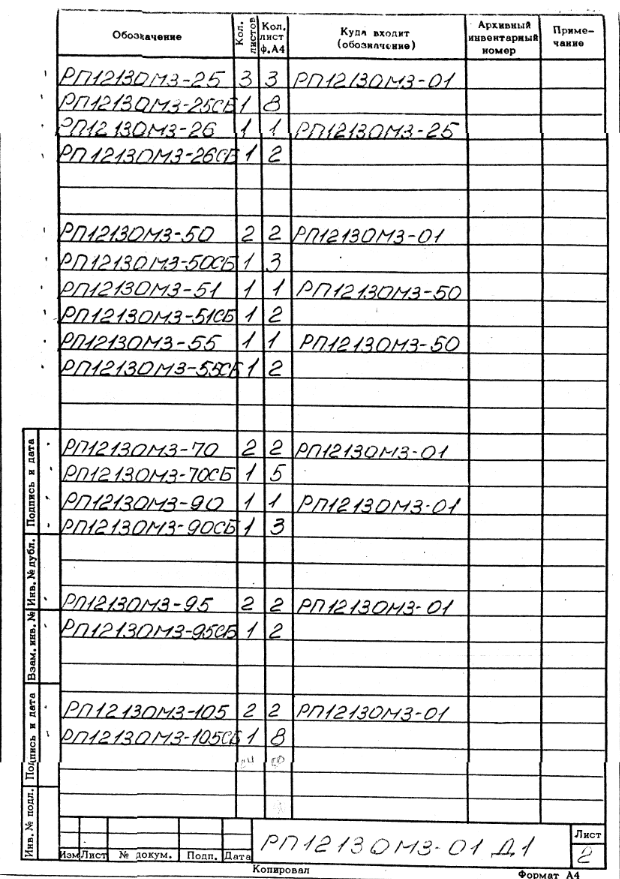 Обозначение Кол. листов Кол. лист ф.А4 Куда входит (обозначение) Архивный инвентарный номер Приме-чание
РП12130МЗ-25 3 3 РП12130МЗ-01
РП12130МЗ-25СБ 1 8
РП12130МЗ-26 1 1 РП12130МЗ-25
РП12130МЗ-26СБ 1 2
РП12130МЗ-50 2 2 РП12130МЗ-01
РП12130МЗ-50СБ 1 3
РП12130МЗ-51 1 1 РП12130МЗ-50
РП12130МЗ-51СБ 1 2
РП12130МЗ-55 1 1 РП12130МЗ-50
РП12130МЗ-55СБ 1 2
РП12130МЗ-70 2 2 РП12130МЗ-01
РП12130МЗ-70СБ 1 5
РП12130МЗ-90 1 1 РП12130МЗ-01
РП12130МЗ-90СБ 1 3
РП12130МЗ-95 2 2 РП12130МЗ-01
РП12130МЗ-95СБ 1 2
РП12130МЗ-105 2 2 РП12130МЗ-01
РП12130МЗ-105СБ 1 8
Подпись и дата
Инв. № дубл.
Взам. инв. №
Подпись и дата
Инв. № подл.
РП12130МЗ-01 Д1
Лист
2
Изм Лист № докум. Подп. Дата
Копировал
Формат А4